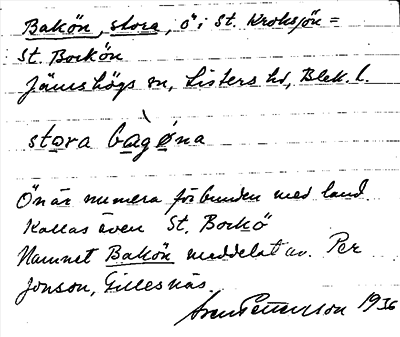 Bakön, stora, ö i St. Kroksjön =
St. Bockön
Jämshögs sn, Listers hd, Blek. l.
stora bàgøna
Ön är numera förbunden med land.
Kallas även St. Bockö
Namnet Bakön meddelat av Per
Jonson, Gillesnäs.
Sven Petterson 1936